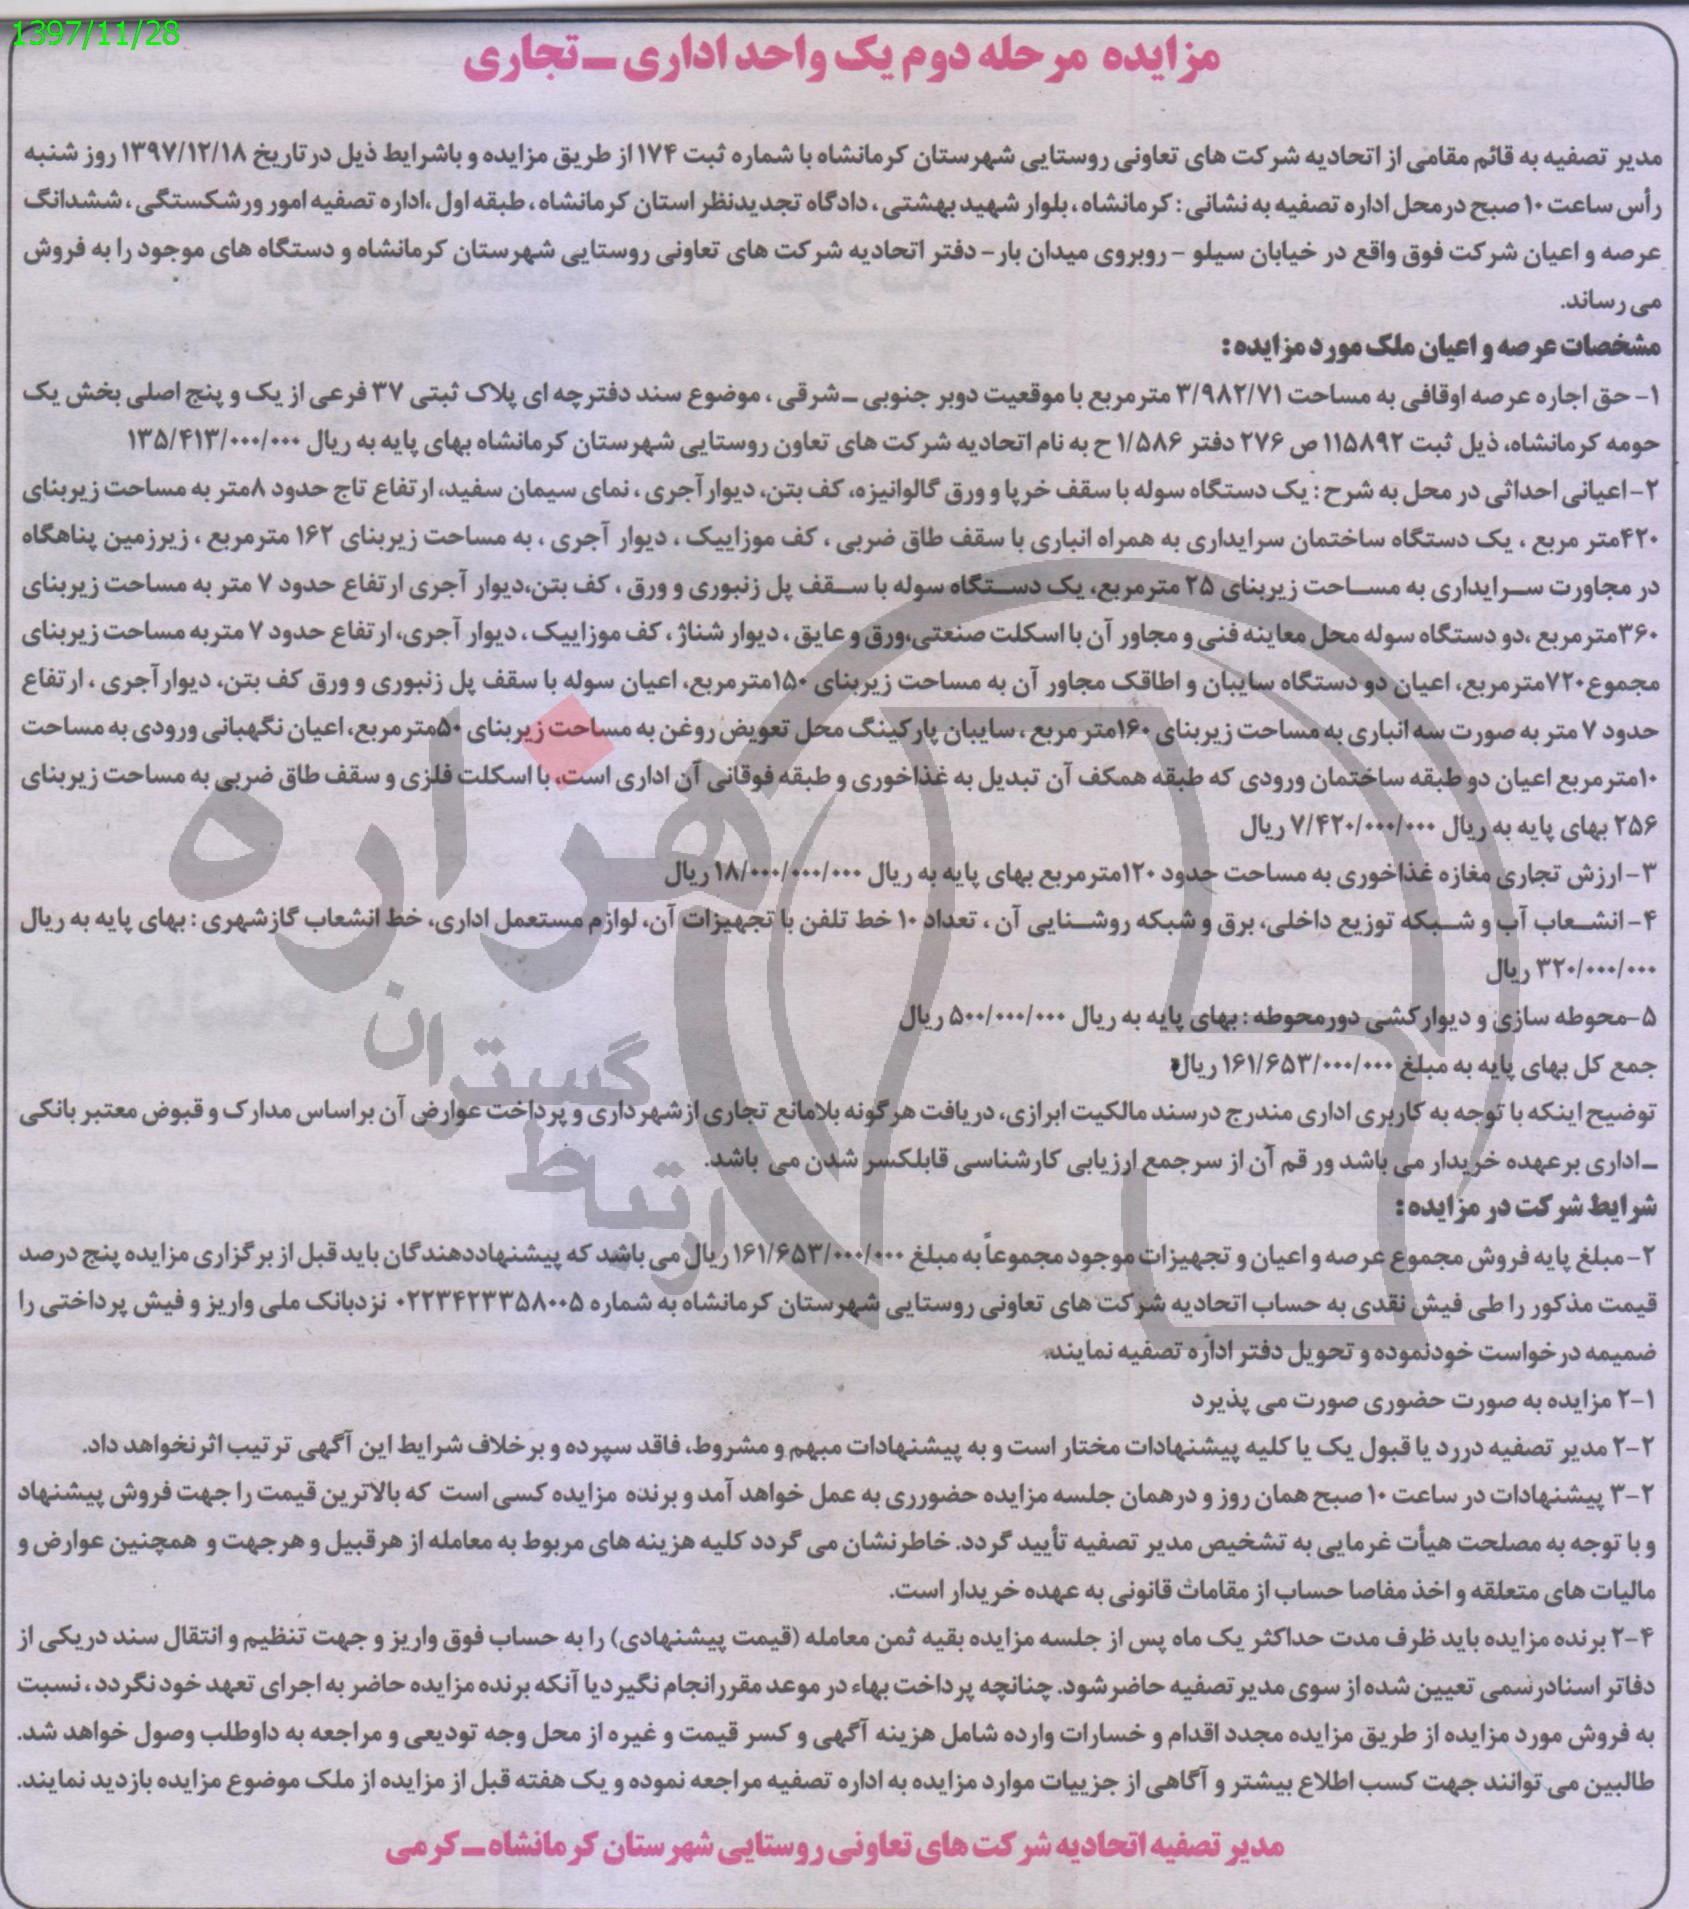 1397/11/28
مزایده مرحله دوم یک واحد اداری ـ تجاری
مدیر تصفیه به قائم مقامی از اتحادیه شرکت های تعاونی روستایی شهرستان کرمانشاه با شماره ثبت ۱۷۴ از طریق مزایده و باشرایط ذیل در تاریخ ۱۳۹۷/۱۲/۱۸ روز شنبه
رأس ساعت ۱۰ صبح درمحل اداره تصفیه به نشانی : کرمانشاه ، بلوار شهید بهشتی ، دادگاه تجدیدنظر استان کرمانشاه ، طبقه اول ،اداره تصفیه امور ورشکستگی ، ششدانگ
عرصه و اعیان شرکت فوق واقع در خیابان سیلو - روبروی میدان بار- دفتر اتحادیه شرکت های تعاونی روستایی شهرستان کرمانشاه و دستگاه های موجود را به فروش
می رساند.
مشخصات عرصه و اعیان ملک مورد مزایده :
۱- حق اجاره عرصه اوقافی به مساحت ۳/۹۸۲/۷۱ مترمربع با موقعیت دوبر جنوبی ـ شرقی ، موضوع سند دفترچه ای پلاک ثبتی ۳۷ فرعی از یک و پنج اصلی بخش یک
حومه کرمانشاه، ذیل ثبت ۱۱۵۸۹۲ ص ۲۷۶ دفتر ۱/۵۸۶ ح به نام اتحادیه شرکت های تعاون روستایی شهرستان کرمانشاه بهای پایه به ریال ۱۳۵/۴۱۳/۰۰۰/۰۰۰
۲- اعیانی احداثی در محل به شرح : یک دستگاه سوله با سقف خرپا و ورق گالوانیزه، کف بتن، دیوار آجری ، نمای سیمان سفید، ارتفاع تاج حدود ۸متر به مساحت زیربنای
۴۲۰متر مربع ، یک دستگاه ساختمان سرایداری به همراه انباری با سقف طاق ضربی ، کف موزاییک ، دیوار آجری ، به مساحت زیربنای ۱۶۲ مترمربع ، زیرزمین پناهگاه
در مجاورت سرایداری به مساحت زیربنای ۲۵ مترمربع، یک دستگاه سوله با سقف پل زنبوری و ورق ، کف بتن،دیوار آجری ارتفاع حدود ۷ متر به مساحت زیربنای
۳۶۰مترمربع ،دو دستگاه سوله محل معاینه فنی و مجاور آن با اسکلت صنعتی،ورق و عایق ، دیوار شناژ ، کف موزاییک ، دیوار آجری، ارتفاع حدود ۷ متربه مساحت زیربنای
مجموع۷۲۰مترمربع، اعیان دو دستگاه سایبان و اطاقک مجاور آن به مساحت زیربنای ۱۵۰مترمربع، اعیان سوله با سقف پل زنبوری و ورق کف بتن، دیوارآجری ، ارتفاع
حدود ۷ متر به صورت سه انباری به مساحت زیربنای ۱۶۰متر مربع ، سایبان پارکینگ محل تعویض روغن به مساحت زیربنای ۵۰مترمربع، اعیان نگهبانی ورودی به مساحت
۱۰مترمربع اعیان دو طبقه ساختمان ورودی که طبقه همکف آن تبدیل به غذاخوری و طبقه فوقانی آن اداری است، با اسکلت فلزی و سقف طاق ضربی به مساحت زیربنای
۲۵۶ بهای پایه به ریال ۷/۴۲۰/۰۰۰/۰۰۰ ریال
۳- ارزش تجاری مغازه غذاخوری به مساحت حدود ۱۲۰مترمربع بهای پایه به ریال ۱۸/۰۰۰/۰۰۰/۰۰۰ ریال
۴- انشعاب آب و شبکه توزیع داخلی، برق و شبکه روشنایی آن ، تعداد ۱۰ خط تلفن با تجهیزات آن، لوازم مستعمل اداری، خط انشعاب گازشهری : بهای پایه به ریال
۳۲۰/۰۰۰/۰۰۰ ریال
۵-محوطه سازی و دیوارکشی دورمحوطه : بهای پایه به ریال ۵۰۰/۰۰۰/۰۰۰ ریال
جمع کل بهای پایه به مبلغ ۱۶۱/۶۵۳/۰۰۰/۰۰۰ ریال
توضیح اینکه با توجه به کاربری اداری مندرج درسند مالکیت ابرازی، دریافت هرگونه بلامانع تجاری ازشهرداری و پرداخت عوارض آن براساس مدارک و قبوض معتبر بانکی
ـ اداری برعهده خریدار می باشد ورقم آن از سرجمع ارزیابی کارشناسی قابلکسر شدن می باشد.
شرایط شرکت در مزایده :
۲- مبلغ پایه فروش مجموع عرصه و اعیان و تجهیزات موجود مجموعاً به مبلغ ۱۶۱/۶۵۳/۰۰۰/۰۰۰ ریال می باشد که پیشنهاددهندگان باید قبل از برگزاری مزایده پنج درصد
قیمت مذکور را طی فیش نقدی به حساب اتحادیه شرکت های تعاونی روستایی شهرستان کرمانشاه به شماره ۰۲۲۳۴۲۳۳۵۸۰۰۵ نزدبانک ملی واریز و فیش پرداختی را
ضمیمه درخواست خودنموده و تحویل دفتر اداره تصفیه نمایند.
۲-۱ مزایده به صورت حضوری صورت می پذیرد
۲-۲ مدیر تصفیه دررد یا قبول یک یا کلیه پیشنهادات مختار است و به پیشنهادات مبهم و مشروط، فاقد سپرده و برخلاف شرایط این آگهی ترتیب اثرنخواهد داد.
۲-۳ پیشنهادات در ساعت ۱۰ صبح همان روز و درهمان جلسه مزایده حضورری به عمل خواهد آمد و برنده مزایده کسی است که بالاترین قیمت را جهت فروش پیشنهاد
و با توجه به مصلحت هیأت غرمایی به تشخیص مدیر تصفیه تأیید گردد. خاطرنشان می گردد کلیه هزینه های مربوط به معامله از هرقبیل و هرجهت و همچنین عوارض و
مالیات های متعلقه و اخذ مفاصا حساب از مقامات قانونی به عهده خریدار است.
۲-۴ برنده مزایده باید ظرف مدت حداکثر یک ماه پس از جلسه مزایده بقیه ثمن معامله (قیمت پیشنهادی) را به حساب فوق واریز و جهت تنظیم و انتقال سند دریکی از
دفاتر اسنادرسمی تعیین شده از سوی مدیر تصفیه حاضرشود. چنانچه پرداخت بهاء در موعد مقررانجام نگیردیا آنکه برنده مزایده حاضر به اجرای تعهد خود نگردد ، نسبت
به فروش مورد مزایده از طریق مزایده مجدد اقدام و خسارات وارده شامل هزینه آگهی و کسر قیمت و غیره از محل وجه تودیعی و مراجعه به داوطلب وصول خواهد شد.
طالبین می توانند جهت کسب اطلاع بیشتر و آگاهی از جزییات موارد مزایده به اداره تصفیه مراجعه نموده و یک هفته قبل از مزایده از ملک موضوع مزایده بازدید نمایند.
مدیر تصفیه اتحادیه شرکت های تعاونی روستایی شهرستان کرمانشاه ـ کرمی
هزاره
ارتباط گستران